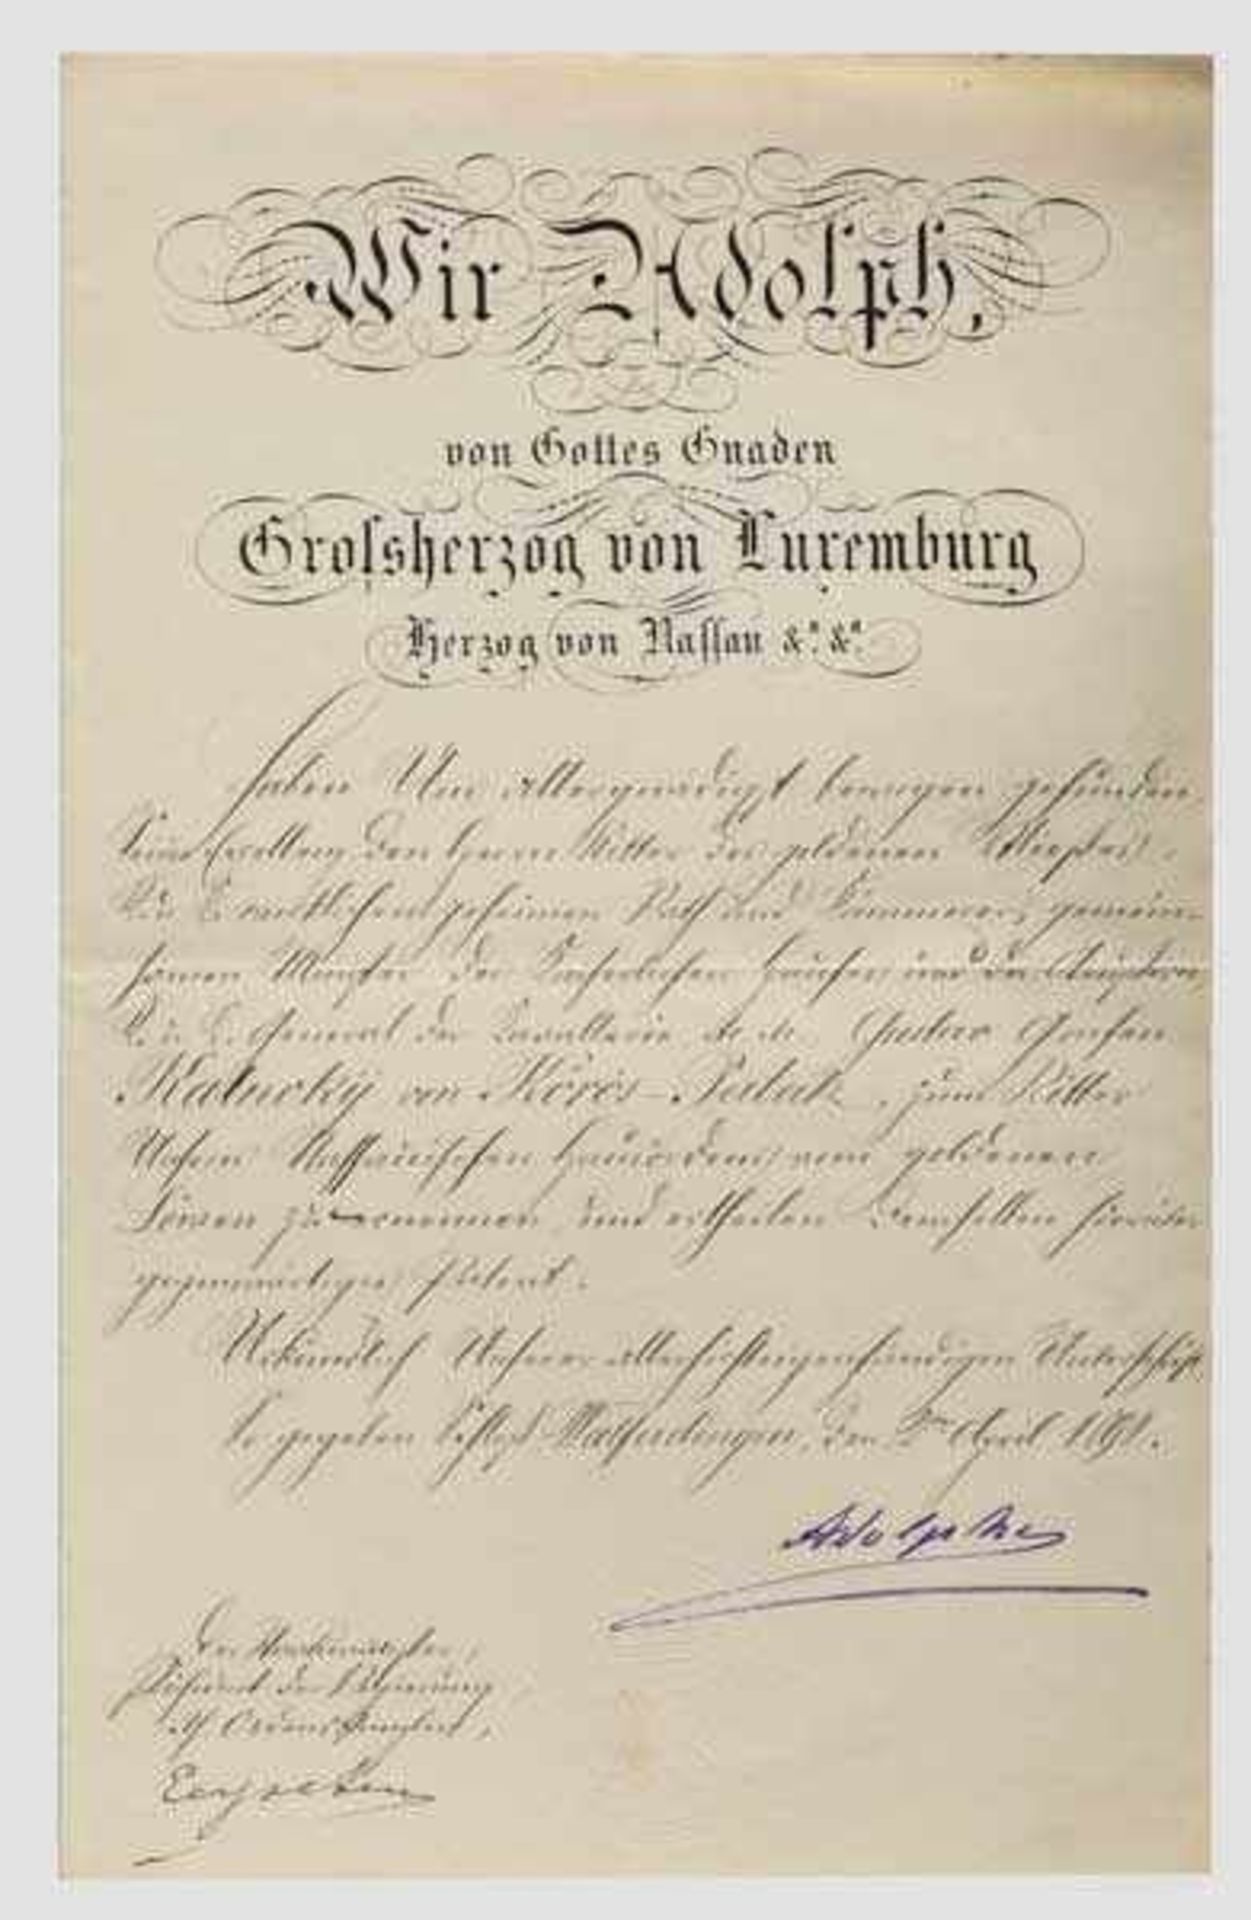 Wir Adolph,
von Gottes Gnaden
Grolsherzog von Luxemburg
Herzog von Nassau &a. &a.
haben Uns Allergnädigst bewogen gefunden,
Seine Excellenz den Herrn Ritter des goldenen Vließes,
K. u. K. wirklichen geheimen Rath und Kämmerer, gemein-
samen Minister des Kaiserlichen Hauses und des Äußern,
K. u. K. General der Cavallerie Gustav Grafen
Kalnoky von Körös-Patak, zum Ritter
Unseres Nassauischen Hausordens vom goldenen
Löwen zu ernennen, und ertheilen Demselben hierüber
gegenwärtiges Patent.
Urkundlich Unserer allerhöchsteigenhändigen Unterschrift
So gegeben Schloß Walferdingen, den April 1891.
Adolphe
Der Staatsminister,
Präsident der Regierung
als Ordenskanzler,
Eyschen